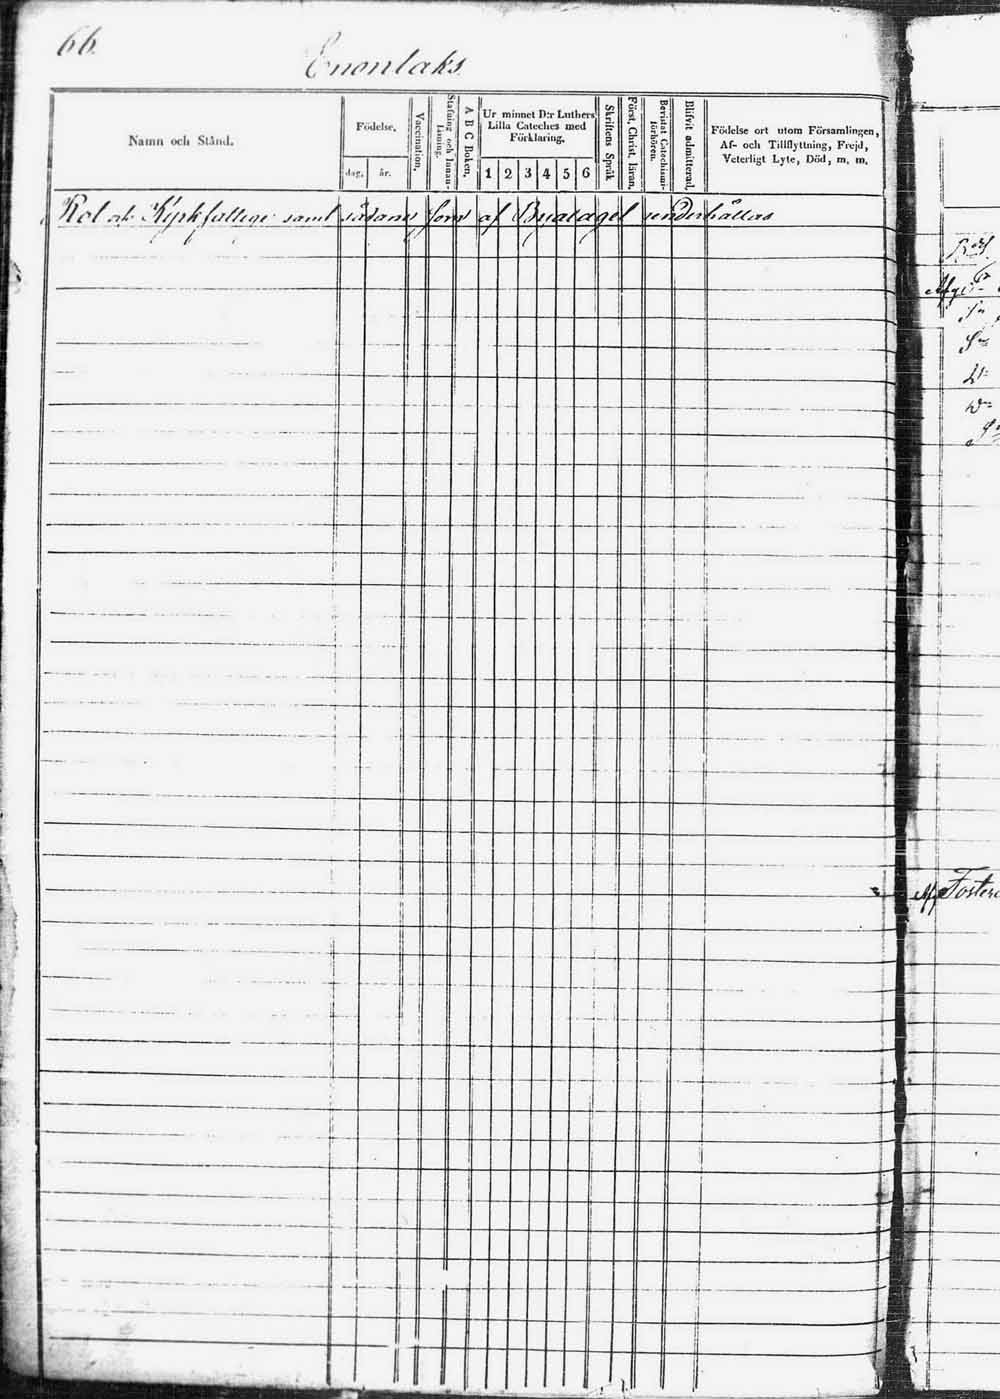 66.
Enonlaks
Namn och Stånd.
Födelse.
dag. år.
Vaccination.
Stafning och Innan-läsning.
A B C Boken.
Ur minnet D:r Luthers
Lilla Cateches med
Förklaring.
1 2 3 4 5 6
Skriftens Språk
Först. Christ. läran.
Bevistat Catechismi-förhören.
Blifvit admitterad.
Födelse ort utom Församlingen,
Af- och Tillflyttning, Frejd,
Veterligt Lyte, Död, m. m.
Rot och Kyrkfattige samt sådane som af Byalaget underhållas
Foster